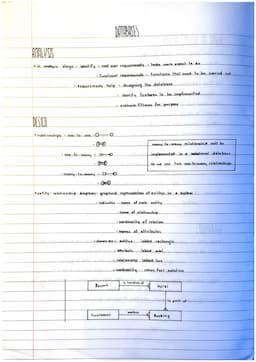 DATABASES
ANALYSIS
• in analysis stage - identify - end user requirements - tasks users expect to do
- functional requirements - functions that need to be carried out
• requirements help - designing the database
- identify features to be implemented
- evaluate fitness for purpose
DESIGN
• relationships - one-to-one
many-to-many relationships
implemented in a relational database
- one-to-many
- many-to-many
• entity-relationship diagram - graphical representation of entities in a system
- indicates - name of each entity
- name of relationship
- cardinality of relation
- names of attributes
- shown as - entity = labelled rectangle
- attribute = labelled oval
- relationship = labelled line
- cardinality = crows foot notation
Resort
is location of
Hotel
is part of
Customer
makes
Booking